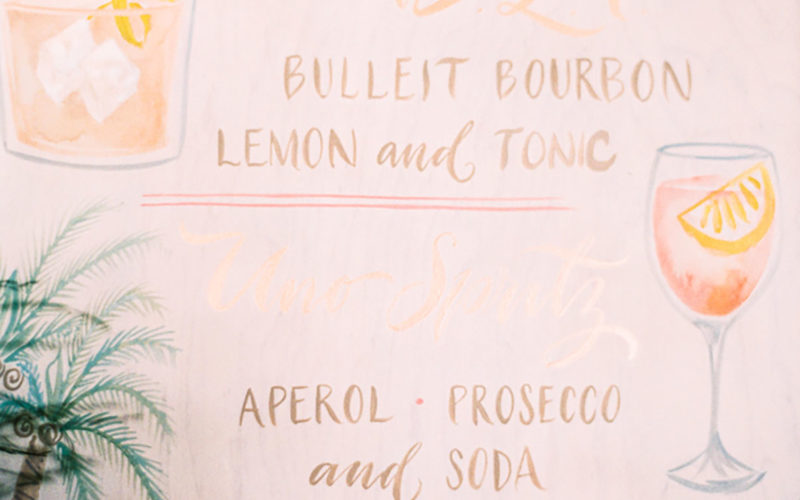 B.L.T
BULLEIT BOURBON
LEMON and TONIC
Uno Spritz
APEROL • PROSECCO
and SODA